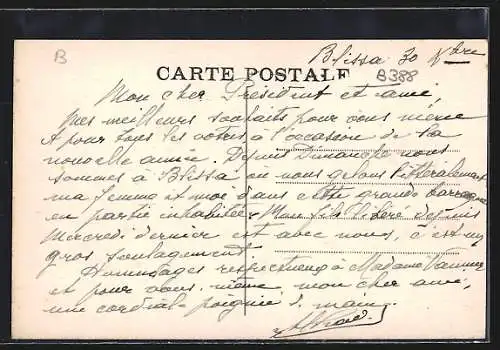 B
Blissa 30 Xbre
CARTE POSTALE
B388
Mon cher Président et ami,
Mes meilleurs souhaits pour vous même
et pour tous les votres à l'occasion de la
nouvelle année. Depuis Dimanche nous
sommes à Blissa ou nous gelons littéralement
ma femme et moi dans cette grande baraque
en partie inhabitée. Mon fils libéré depuis
Mercredi dernier est avec nous, c'est un
gros soulagement
Hommages respectueux à Madame
et pour vous même, mon cher ami,
une cordiale poignée d. main.